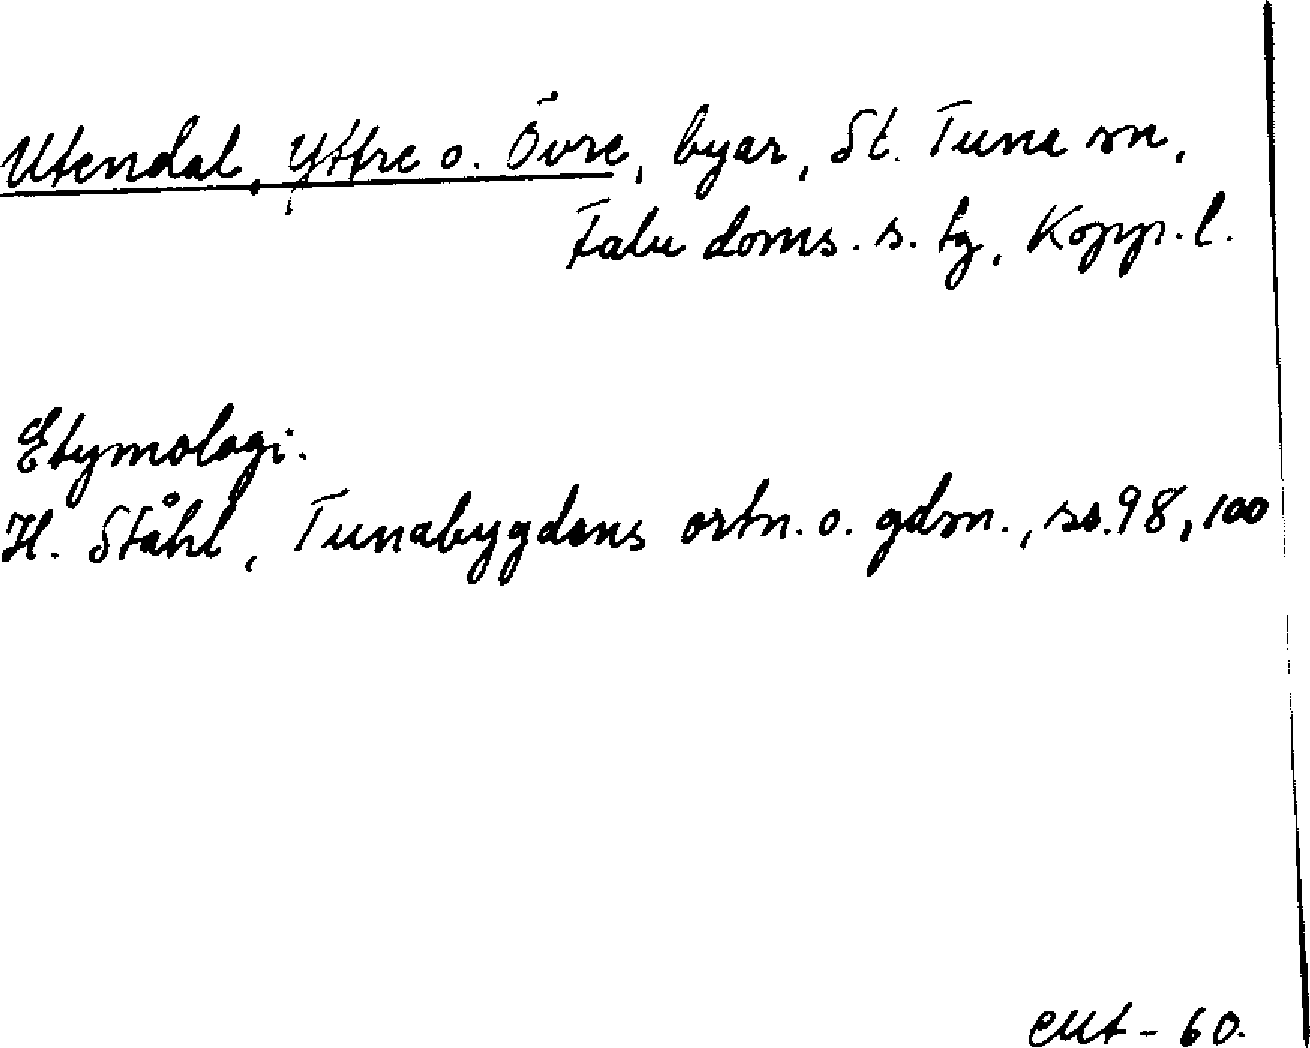 Utendal, Yttre o. Övre, byar, St. Tuna sn,
Falu doms. s. tg, Kopp. l.
Etymologi.
H. Ståhl, Tunabygdens ortn. o. gdsn., ss. 98, 100
60.